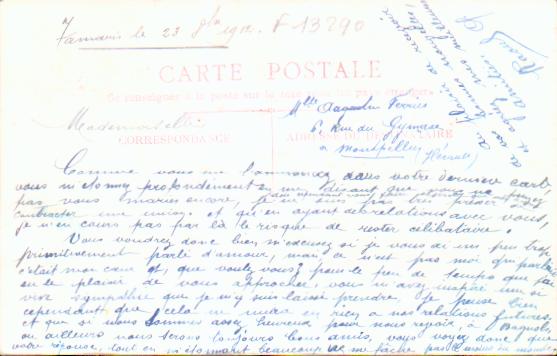 Tamaris le 23 1912. F-13290
CARTE POSTALE
Se renseigner à la poste
Mademoiselle
CORRESPONDANCE
Mlle Ferrier
6, Rue du Gymnase
Montpellier
(Hérault)
Comme vous me l'annoncez dans votre dernière carte
vous m'étonnez profondément en me disant que vous ne
pas vous marier encore, je ne suis pas très pressé
contracter une union. et qu'en ayant des relations avec vous,
je n'en cours pas par là le risque de rester célibataire.
Vous voudrez donc bien m'excuser si je vous ai un peu trop
primitivement parlé d'amour, mais ce n'est pas moi qui parle
c'était mon cœur et, que voulez-vous? pour le peu de temps que j'ai
eu le plaisir de vous approcher, vous m'avez inspiré une si
vive sympathie que je m'y suis laissé prendre. Je pense bien
cependant que cela ne nuira en rien à nos relations futures,
et que si nous sommes assez heureux pour nous revoir, à Bagnols
ou ailleurs nous serons toujours bons amis. vous voyez donc que
votre réponse, tout en m'étonnant beaucoup ne me fâche pas le moins du monde
Au plaisir de recevoir
de vos bonnes nouvelles
et agréez mes meilleures
amitiés
Raoul